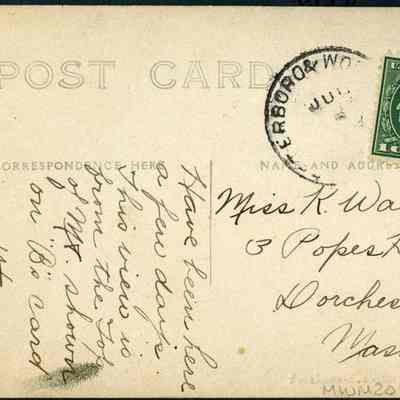 POST CARD
ERBORO & WO
JUL
CORRESPONDENCE HERE
NAME AND ADDRES
Have been here
a few days.
This view is
from the Top
of Mt. shown
on B's card
Miss K. Wa
3 Popes H
Dorches
Mas
MWM20